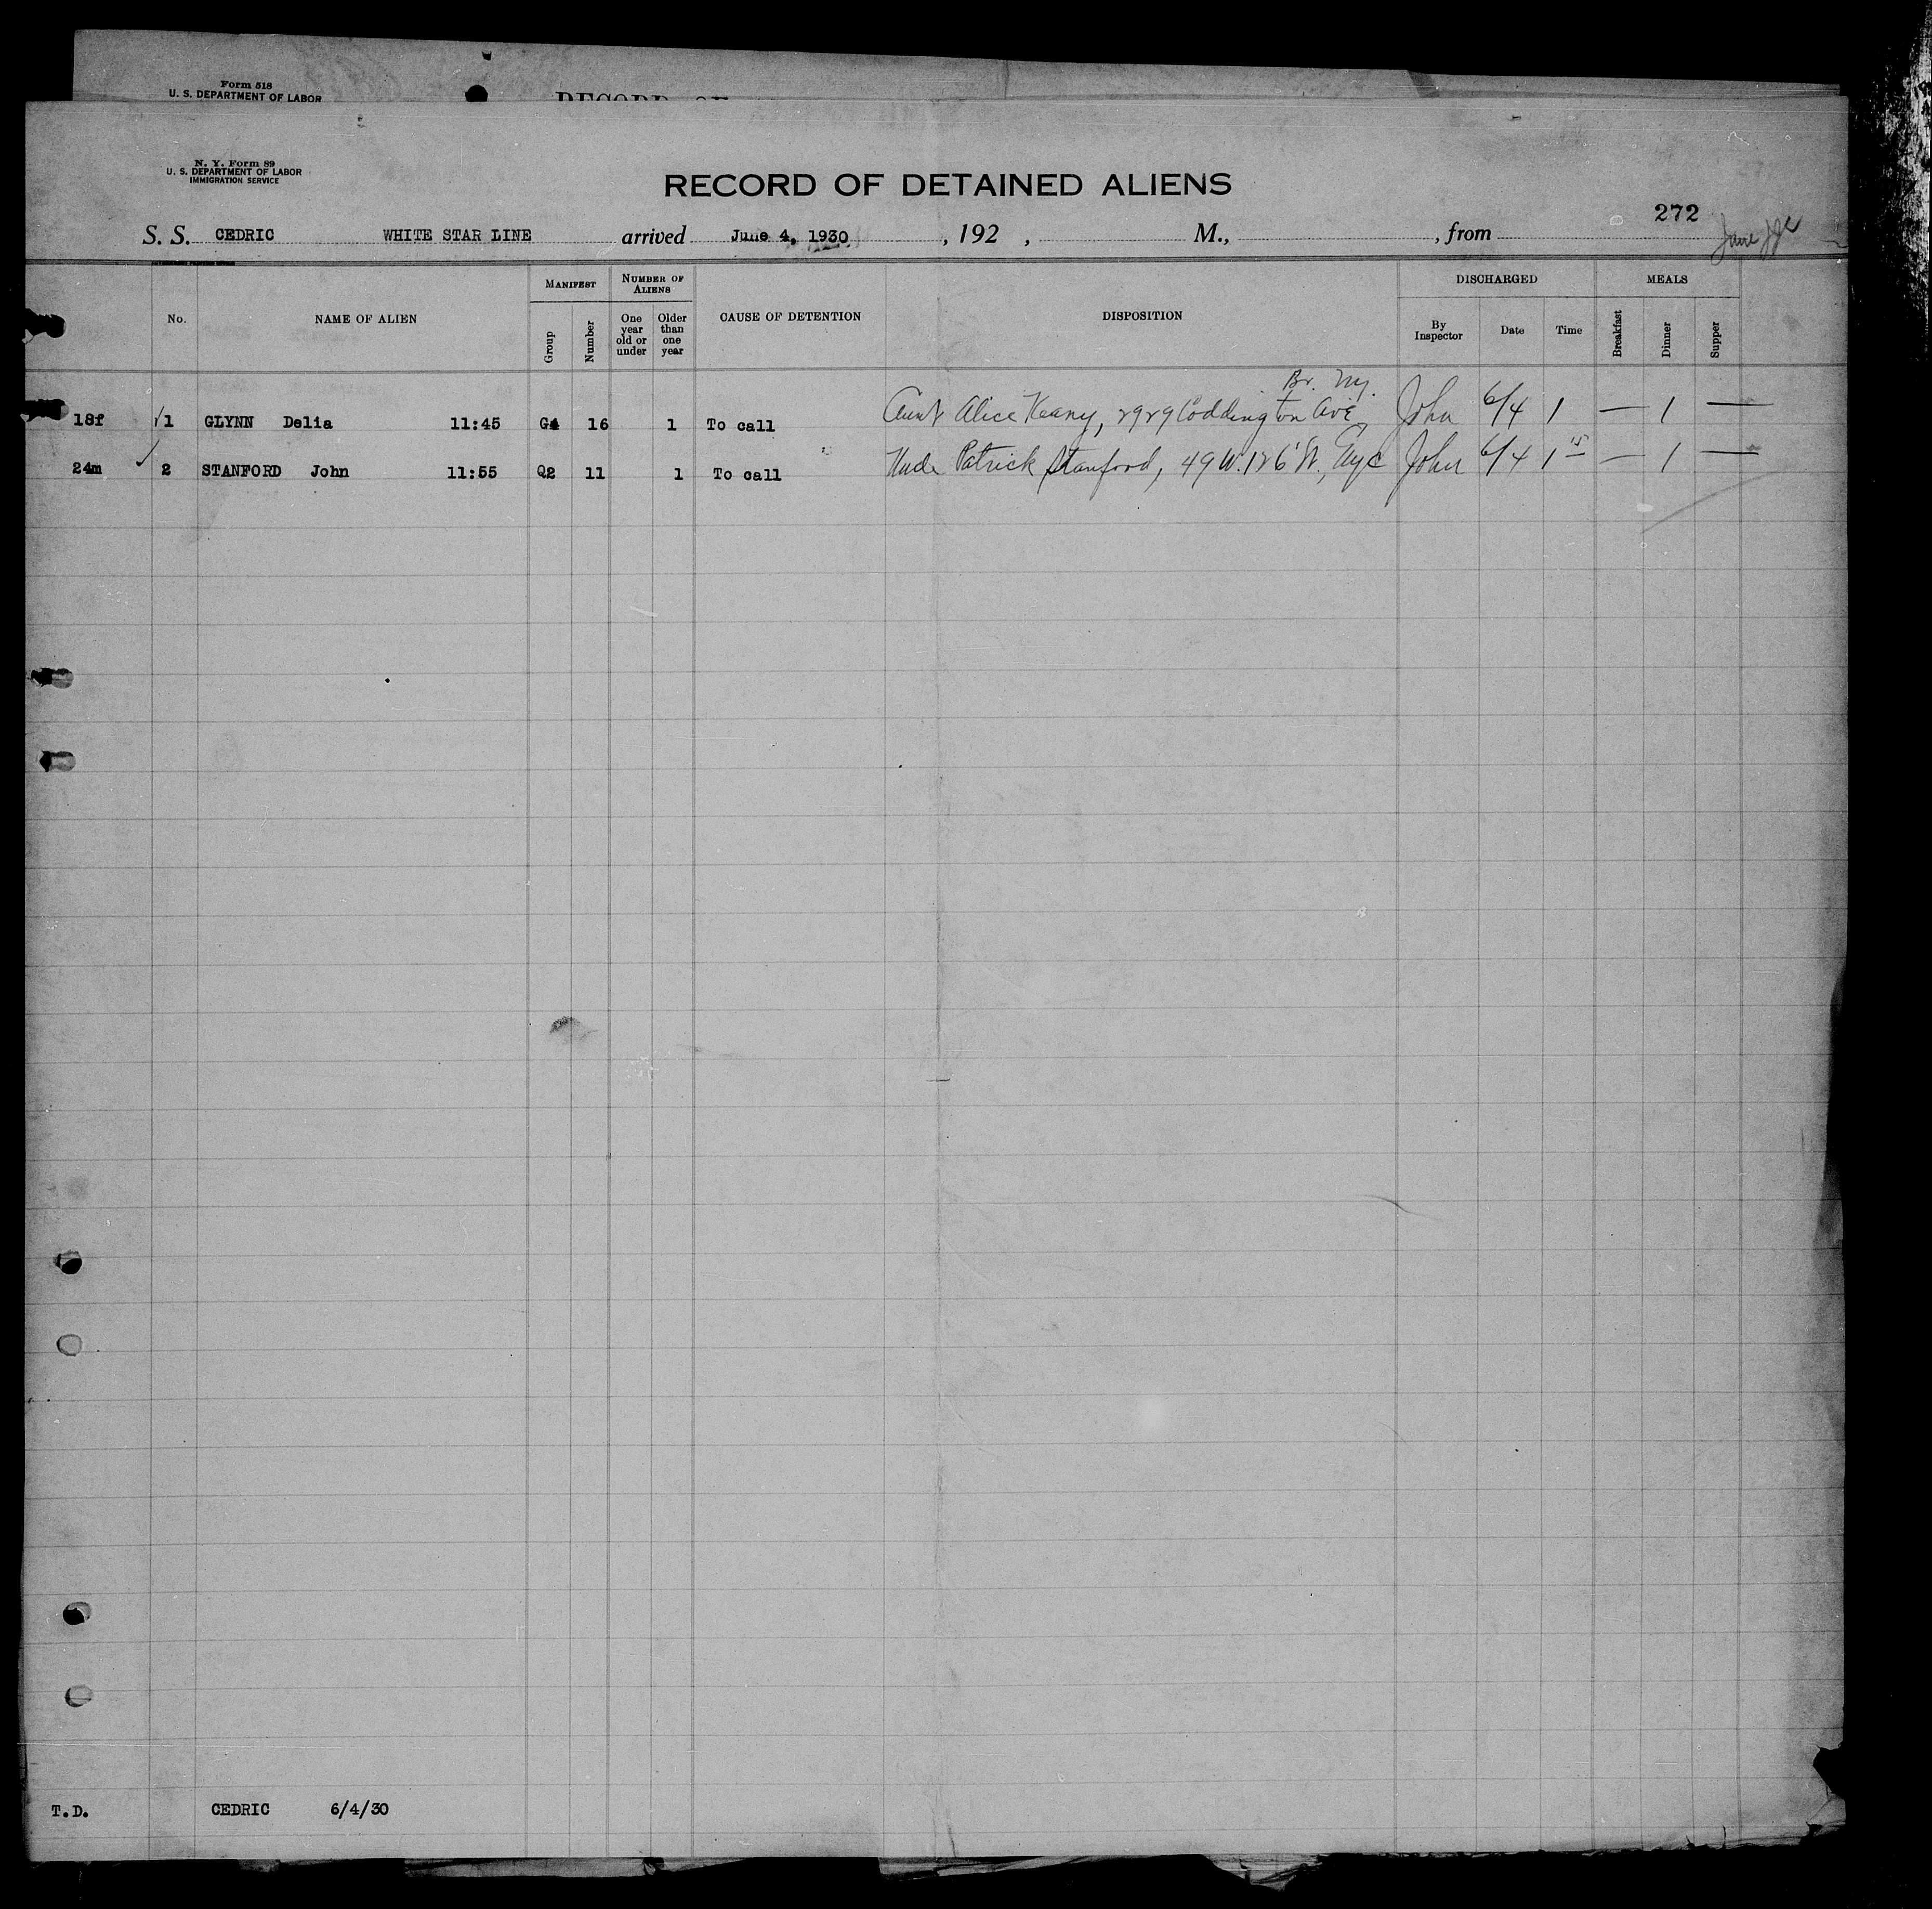 Form 518
U. S. DEPARTMENT OF LABOR
RECORD OF
N. Y. Form 89
U. S. DEPARTMENT OF LABOR
IMMIGRATION SERVICE
RECORD OF DETAINED ALIENS
272
S. S. CEDRIC WHITE STAR LINE arrived June 4, 1930 , 192 , M., , from
No. NAME OF ALIEN MANIFEST Group Number NUMBER OF ALIENS One year old or under Older than one year CAUSE OF DETENTION DISPOSITION DISCHARGED By Inspector Date Time MEALS Breakfast Dinner Supper
Br. Ny.
18f 1 GLYNN Delia 11:45 G4 16 1 To call Aunt Alice Keany, 2929 Coddington Ave John 6/4 1 — 1 —
24m 2 STANFORD John 11:55 Q2 11 1 To call Uncle Patrick Stanford, 49 W. 126 St., Nyc John 6/4 1 15 — 1 —
T.D. CEDRIC 6/4/30